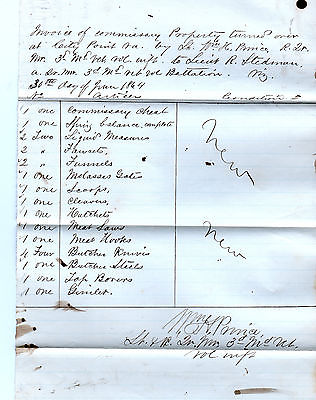 Invoice of commissary Property turned over
at City Point Va. by Lt. Wm. H. Prince R. Qr.
Mr. 3d Me Vet Vol Infy. to Lieut R. Stedman
a. Qr. Mr. 3d Me Vet Vol Battalion.
30th day of June 1864
No Articles Condition
1 one Commissary Chest
1 one Spring balance, complete
2 Two Liquid Measures New
2 " Fawsets,
2 " Funnels
1 one Molasses Gates
1 one Scoops,
1 one Cleavers,
1 one Hatchets
1 one Meat Saws New
1 one Meat Hooks
4 Four Butcher Knives
1 one Butcher Steels
1 one Tap Borers
1 one Gimlet.
Wm H. Prince,
Lt. & R. Qr. Mr. 3d Me Vet.
Vol inft